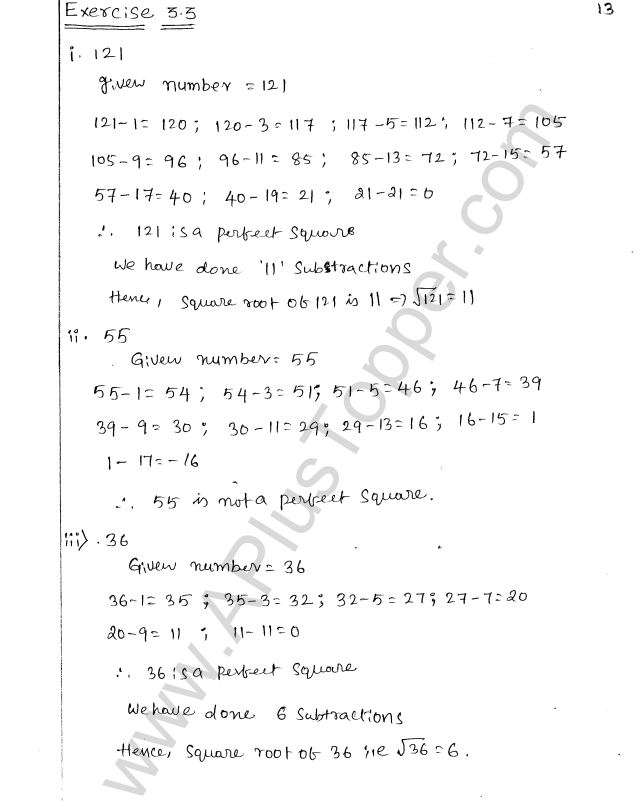 Exercise 3.3
13
i. 121
Given number = 121
121-1= 120 ; 120-3=117 ; 117-5=112 ; 112-7=105
105-9= 96 ; 96-11= 85 ; 85-13=72 ; 72-15=57
57-17=40 ; 40-19=21 ; 21-21=0
∴ 121 is a perfect square
We have done '11' Substractions
Hence, Square root of 121 is 11 => √121=11
ii. 55
Given number= 55
55-1= 54 ; 54-3=51; 51-5=46 ; 46-7=39
39-9= 30 ; 30-11=29; 29-13=16 ; 16-15= 1
1-17=-16
∴ 55 is not a perfect Square.
iii) . 36
Given number= 36
36-1= 35 ; 35-3=32; 32-5=27; 27-7=20
20-9= 11 ; 11-11=0
∴ 36 is a perfect Square
We have done 6 Subtractions
Hence, Square root of 36 ie √36=6.
www.APlusTopper.com